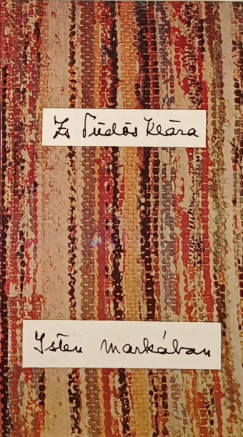 Zs Tüdős Klára
Isten markában